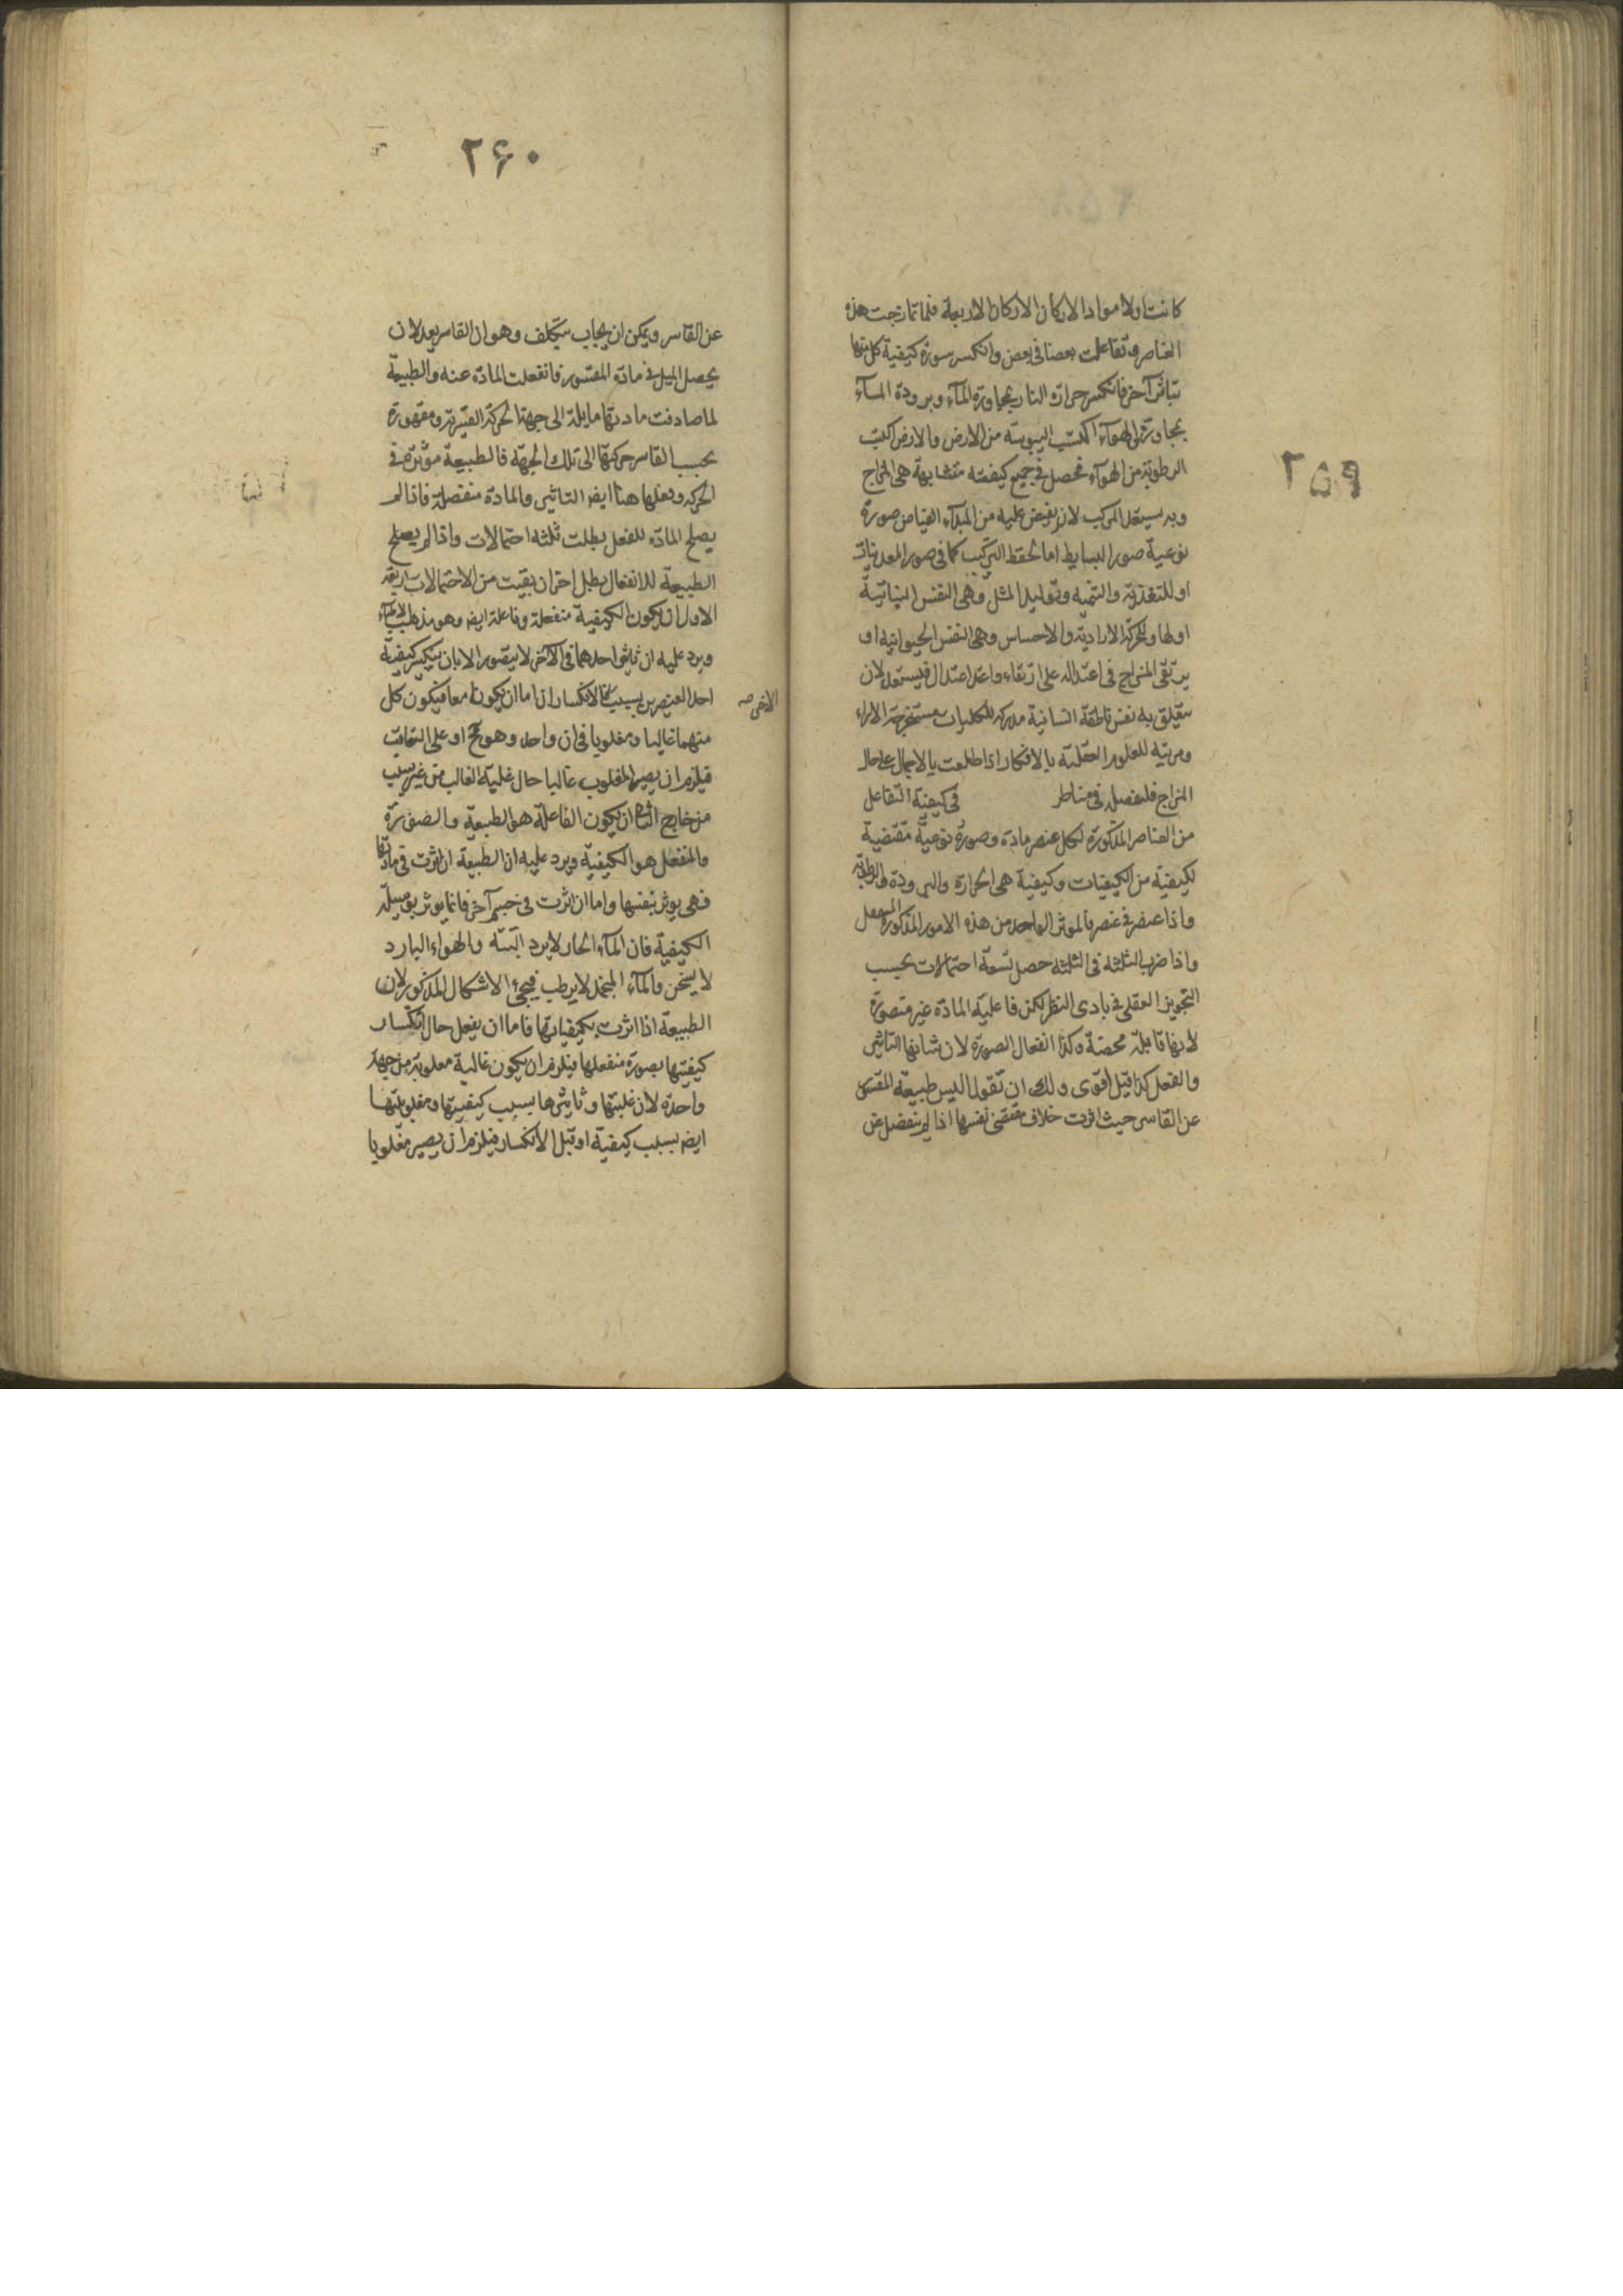 ٢٥٩
كانت اولا مواد الاركان الاركان الاربعة فلما تمازجت هذه
العناصر وتفاعلت بعضا فى بعض وانكسر سورة كيفية كل منها
بتاثير آخر فانكسر حرارة النار بمجاورة المآء وبرودة المآء
بمجاورتى الهوآء اكتسب اليبوسة من الارض والارض اكتسب
الرطوبة من الهوآء فحصل فى جميع كيفيته متشابهة هى المزاج
وبه يستعد المركب لان يفيض عليه من المبدآء الفياض صورة
نوعية صور البسايط اما لحفظ التركيب كما فى صور المعدنيات
او للتغذية والتنميه وتوليد المثل وهى النفس النباتية
او لها وللحركة الارادية والاحساس وهى النفس الحيوانيه او
يرتقى المزاج فى اعتداله على ارتقاء واعتد اعتدال فليستعد لان
يتعلق به نفس ناطقة انسانية مدركه للكليات مستخرجة الاراء
ومرتبه للعلوم العقلية بالافكار اذا طلعت بالاجمال على حال
المزاج فلنفصله فى مناطر فى كيفية التفاعل
من العناصر المذكورة لكل عنصر مادة وصورة نوعية مقتضية
لكيفية من الكيفيات وكيفية هى الحرارة والبرودة والرطوبة
واذا عنصر فى عنصر فالموثر الواحد من هذه الامور المذكورة المنفعل
واذا ضرب الثلثة فى الثلثه حصل تسعة احتمالات بحسب
التجويز العقلى فى بادى النظر لكن فاعلية المادة غير متصورة
لانها قابلة محضة وكذا انفعال الصورة لان شانها التاثير
والفعل كذا قيل اقوى ولك ان تقول اليس طبيعة المقسور
عن القاسر حيث اثرت خلاف مقتضى نفسها اذا لم ينفصل عن
٢۶٠
عن القاسر ويمكن ان يجاب بتكلف وهو ان القاسر يعد لان
يحصل الميل فى مادة المقسور فانفعلت المادة عنه والطبيعة
لما صادفت مادتها مايلة الى جهة الحركة القسرية ومقهورة
بحسب القاسر حركتها الى تلك الجهة فالطبيعة موثرة فى
الحركه وفعلها هنا ايضا التاثير والمادة منفصلة فاذا لم
يصلح المادة للفعل بطلت ثلثه احتمالات واذا لم يصلح
الطبيعة للانفعال بطل اخران بقيت من الاحتمالات اربعة
الاول ان يكون الكيفية منفعلة وفاعلة ايضا وهو مذهب الاطبآء
ويرد عليه ان تاثير احدهما فى الآخر لا يتصور الا بان ينكسر كيفية
احد العنصرين بسبب الاخر فالانكساران اما ان يكونا معا فيكون كل
منهما غالبا ومغلوبا فى ان واحد وهو مح او على التعاقب
فيلزم ان يصير المغلوب غالبا حال غلبة الغالب من غير سبب
من خارج الثانى ان يكون الفاعلة هو الطبيعة والصورة
والمنفعل هو الكيفية ويرد عليه ان الطبيعة ان اثرت فى مادتها
فهى يوثر بنفسها واما ان اثرت فى جسم آخر فانما يوثر بوسيلة
الكيفية فان المآء الحار لا يبرد البتة والهواء البارد
لا يسخن والمآء المنجمد لا يرطب فيجئ الاشكال المذكور لان
الطبيعة اذا اثرت بكيفياتها فاما ان يفعل حال انكسار
كيفيتها بصورة منفعلها فيلزم ان يكون غالبة مغلوبة من جهة
واحدة لان غلبتها وتاثيرها بسبب كيفيتها ومغلوبيتها
ايضا بسبب كيفية او قبل الانكسار فيلزم ان يصير مغلوبا